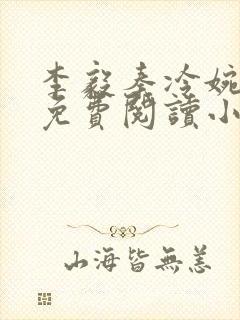 李毅秦冷婉
免費閱讀小
山海皆無恙